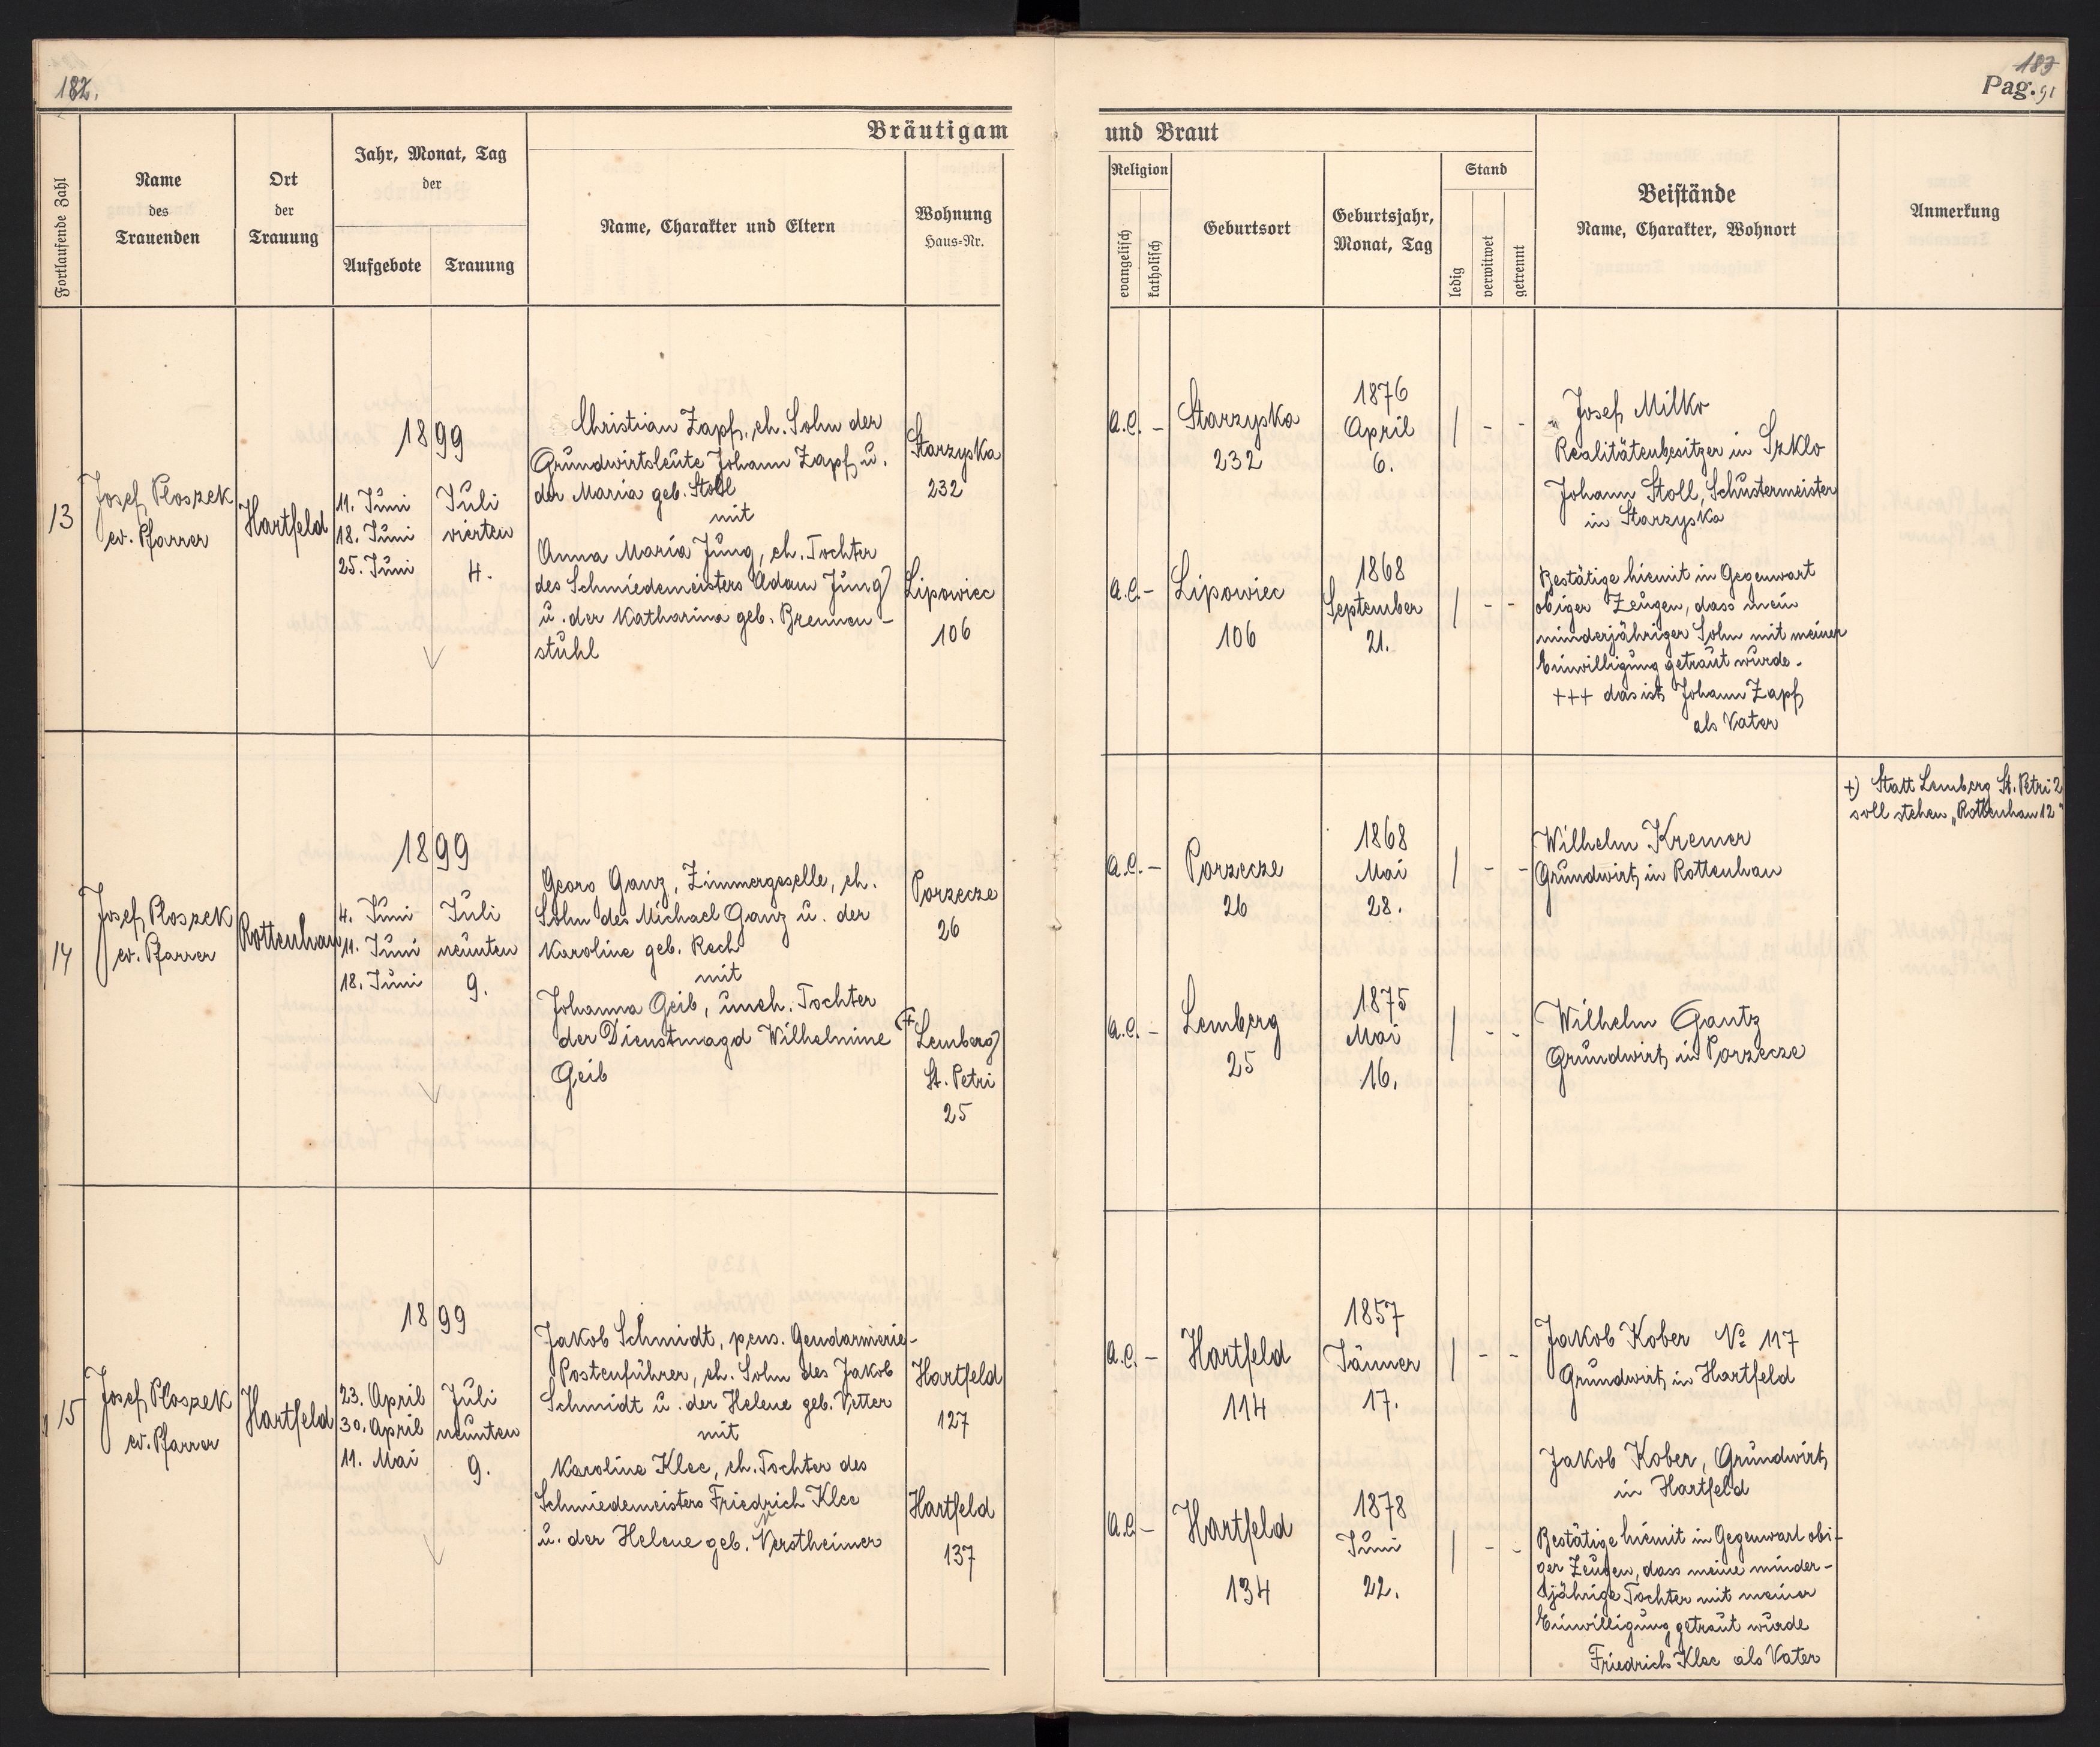 182.
183
Pag. 91
Bräutigam
und Braut
Fortlaufende Zahl
Name
des
Trauenden
Ort
der
Trauung
Jahr, Monat, Tag
der
Aufgebote
Trauung
Name, Charakter und Eltern
Wohnung
Haus-Nr.
Religion
evangelisch
katholisch
Geburtsort
Geburtsjahr,
Monat, Tag
Stand
ledig
verwitwet
getrennt
Beistände
Name, Charakter, Wohnort
Anmerkung
13
Josef Ploszek
ev. Pfarrer
Hartfeld
1899
11. Juni
18. Juni
25. Juni
Juli
vierten
4.
Christian Zapf, eh. Sohn der
Grundwirtsleute Johann Zapf u.
der Maria geb. Stoll
mit
Anna Maria Jung, eh. Tochter
des Schmiedemeisters Adam Jung
u. der Katharina geb. Brennen-
stuhl
Starzyska
232
Lipowiec
106
a.C. -
Starzyska
232
1876
April
6.
/ - -
a.C. -
Lipowiec
106
1868
September
21.
/ - -
Josef Milko
Realitätenbesitzer in Szklo
Johann Stoll, Schustermeister
in Starzyska
Bestätige hiemit in Gegenwart
obiger Zeugen, dass mein
minderjähriger Sohn mit meiner
Einwilligung getraut wurde.
+++ das ist Johann Zapf
als Vater
14
Josef Ploszek
ev. Pfarrer
Rottenhan
1899
4. Juni
11. Juni
18. Juni
Juli
neunten
9.
Georg Ganz, Zimmergeselle, eh.
Sohn des Michael Ganz u. der
Karoline geb. Rech
mit
Johanna Geib, uneh. Tochter
der Dienstmagd Wilhelmine
Geib
Porzecze
26
+) Lemberg
St. Petri
25
a.C. -
Porzecze
26
1868
Mai
28.
/ - -
a.C. -
Lemberg
25
1875
Mai
16.
/ - -
Wilhelm Kremer
Grundwirt in Rottenhan
Wilhelm Gantz
Grundwirt in Porzecze
+) Statt Lemberg St. Petri 2
soll stehen „Rottenhan 12"
15
Josef Ploszek
ev. Pfarrer
Hartfeld
1899
23. April
30. April
11. Mai
Juli
neunten
9.
Jakob Schmidt, pens. Gendarmerie-
Postenführer, eh. Sohn des Jakob
Schmidt u. der Helene geb. Vetter
mit
Karoline Klee, eh. Tochter des
Schmiedemeisters Friedrich Klee
u. der Helene geb. Verstheimer
Hartfeld
127
Hartfeld
137
a.C. -
Hartfeld
114
1857
Jänner
17.
/ - -
a.C. -
Hartfeld
134
1878
Juni
22.
/ - -
Jakob Kober No 117
Grundwirt in Hartfeld
Jakob Kober, Grundwirt
in Hartfeld
Bestätige hiemit in Gegenwart obi-
ger Zeugen, dass meine minder-
jährige Tochter mit meiner
Einwilligung getraut wurde
Friedrich Klee als Vater